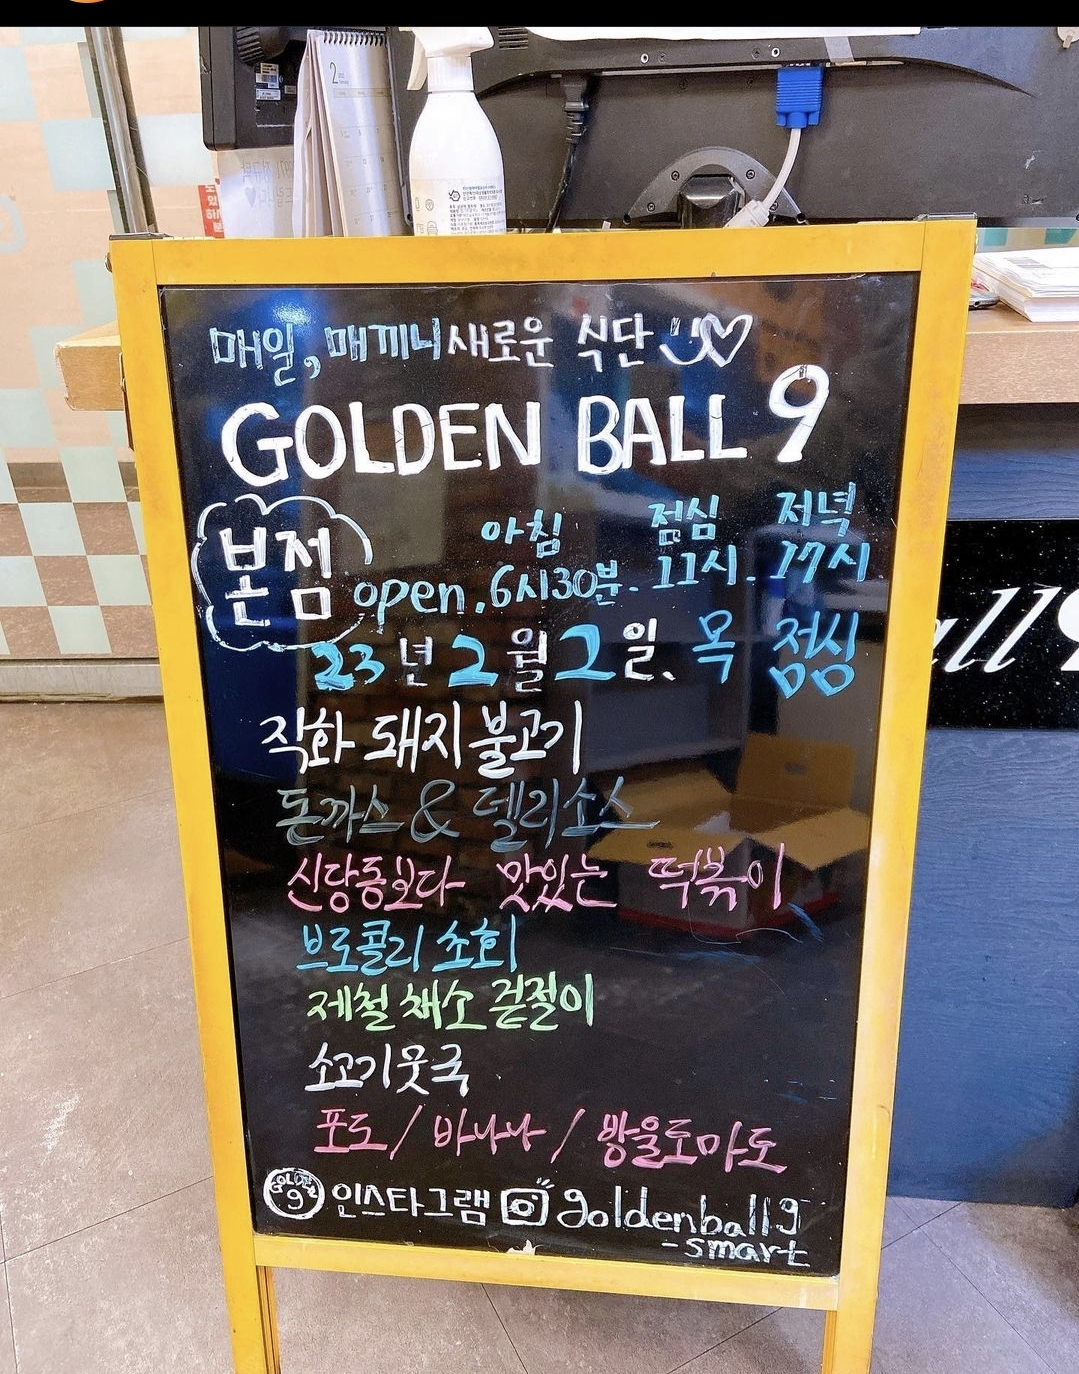 매일, 매끼니 새로운 식단
GOLDEN BALL 9
본점
아침 점심 저녁
open. 6시30분. 11시. 17시
23년 2월 2일. 목 점심
직화 돼지불고기
돈까스 & 델리소스
신당동보다 맛있는 떡볶이
브로콜리 초회
제철 채소 겉절이
소고기뭇국
포도 / 바나나 / 방울토마토
인스타그램 goldenball9
-smart